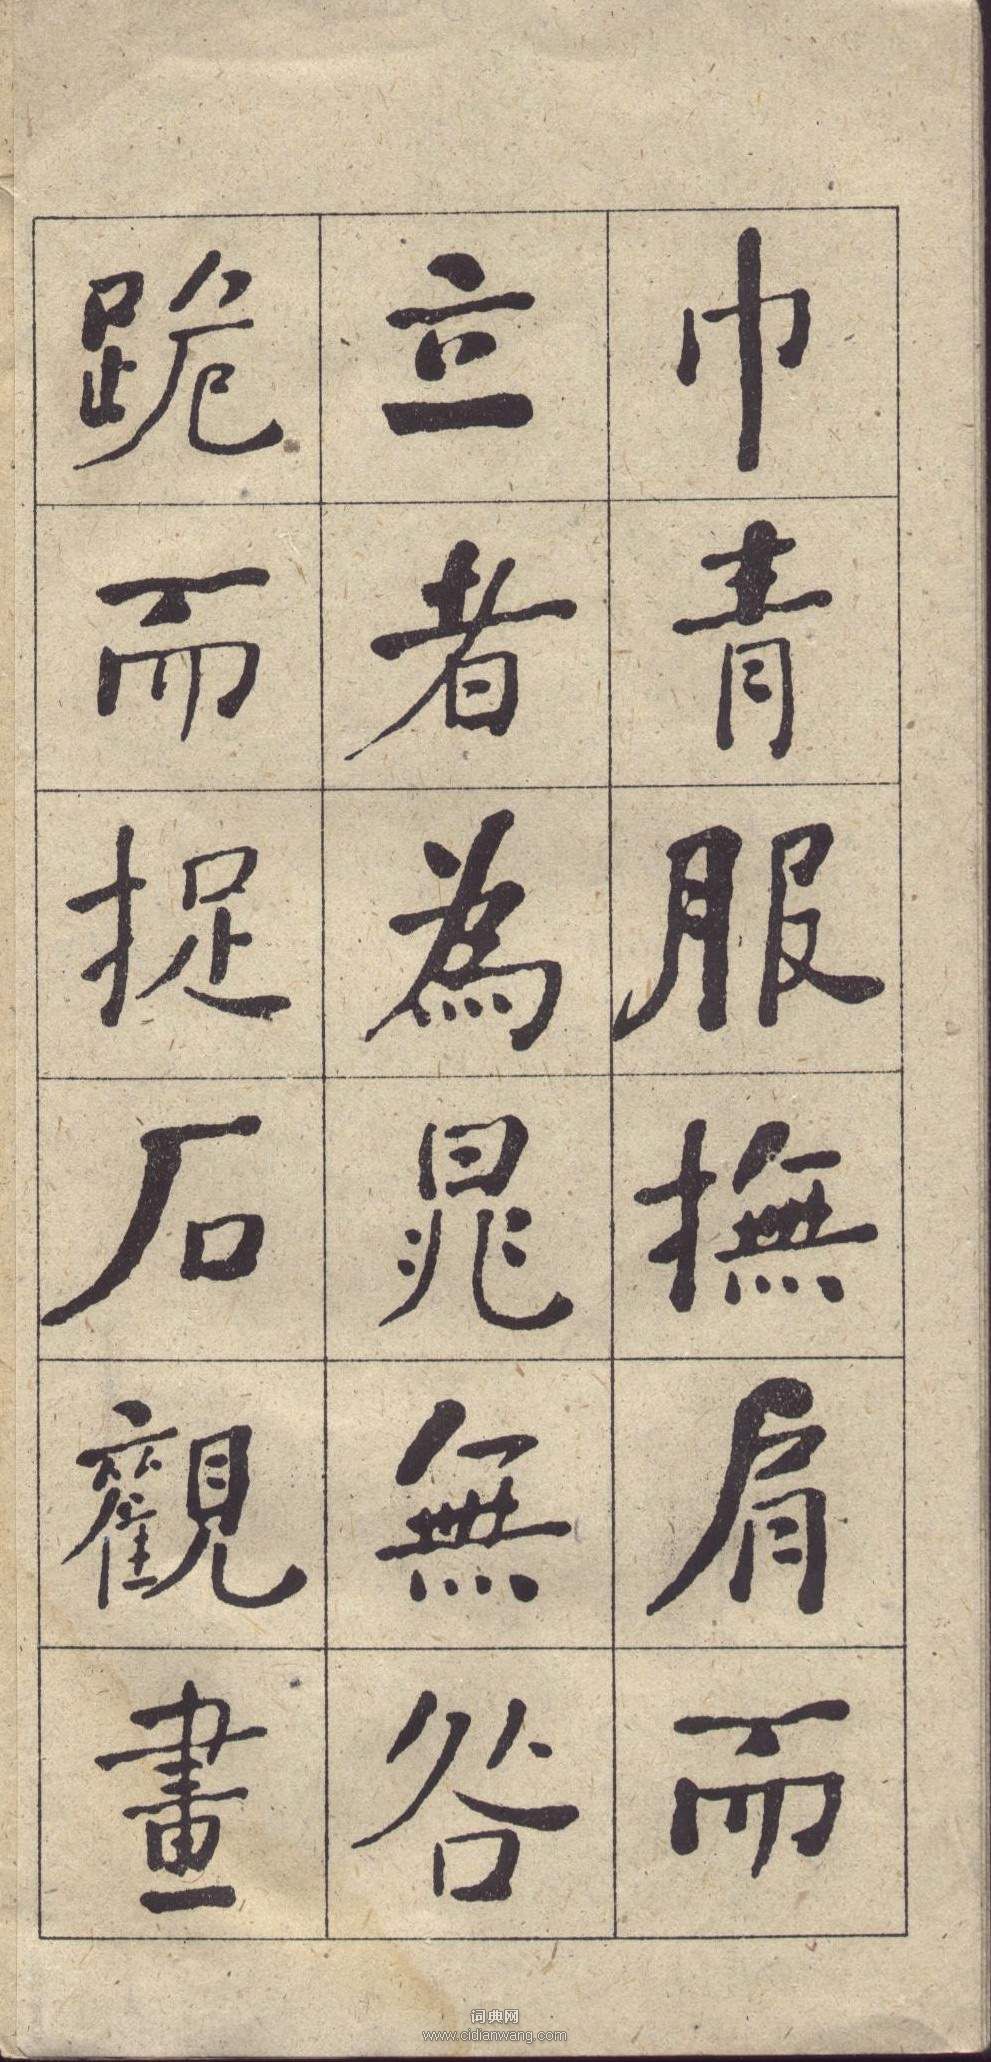 巾青服撫肩而
立者為晁無咎
跪而捉石觀畫
词典网
www.cidianwang.com